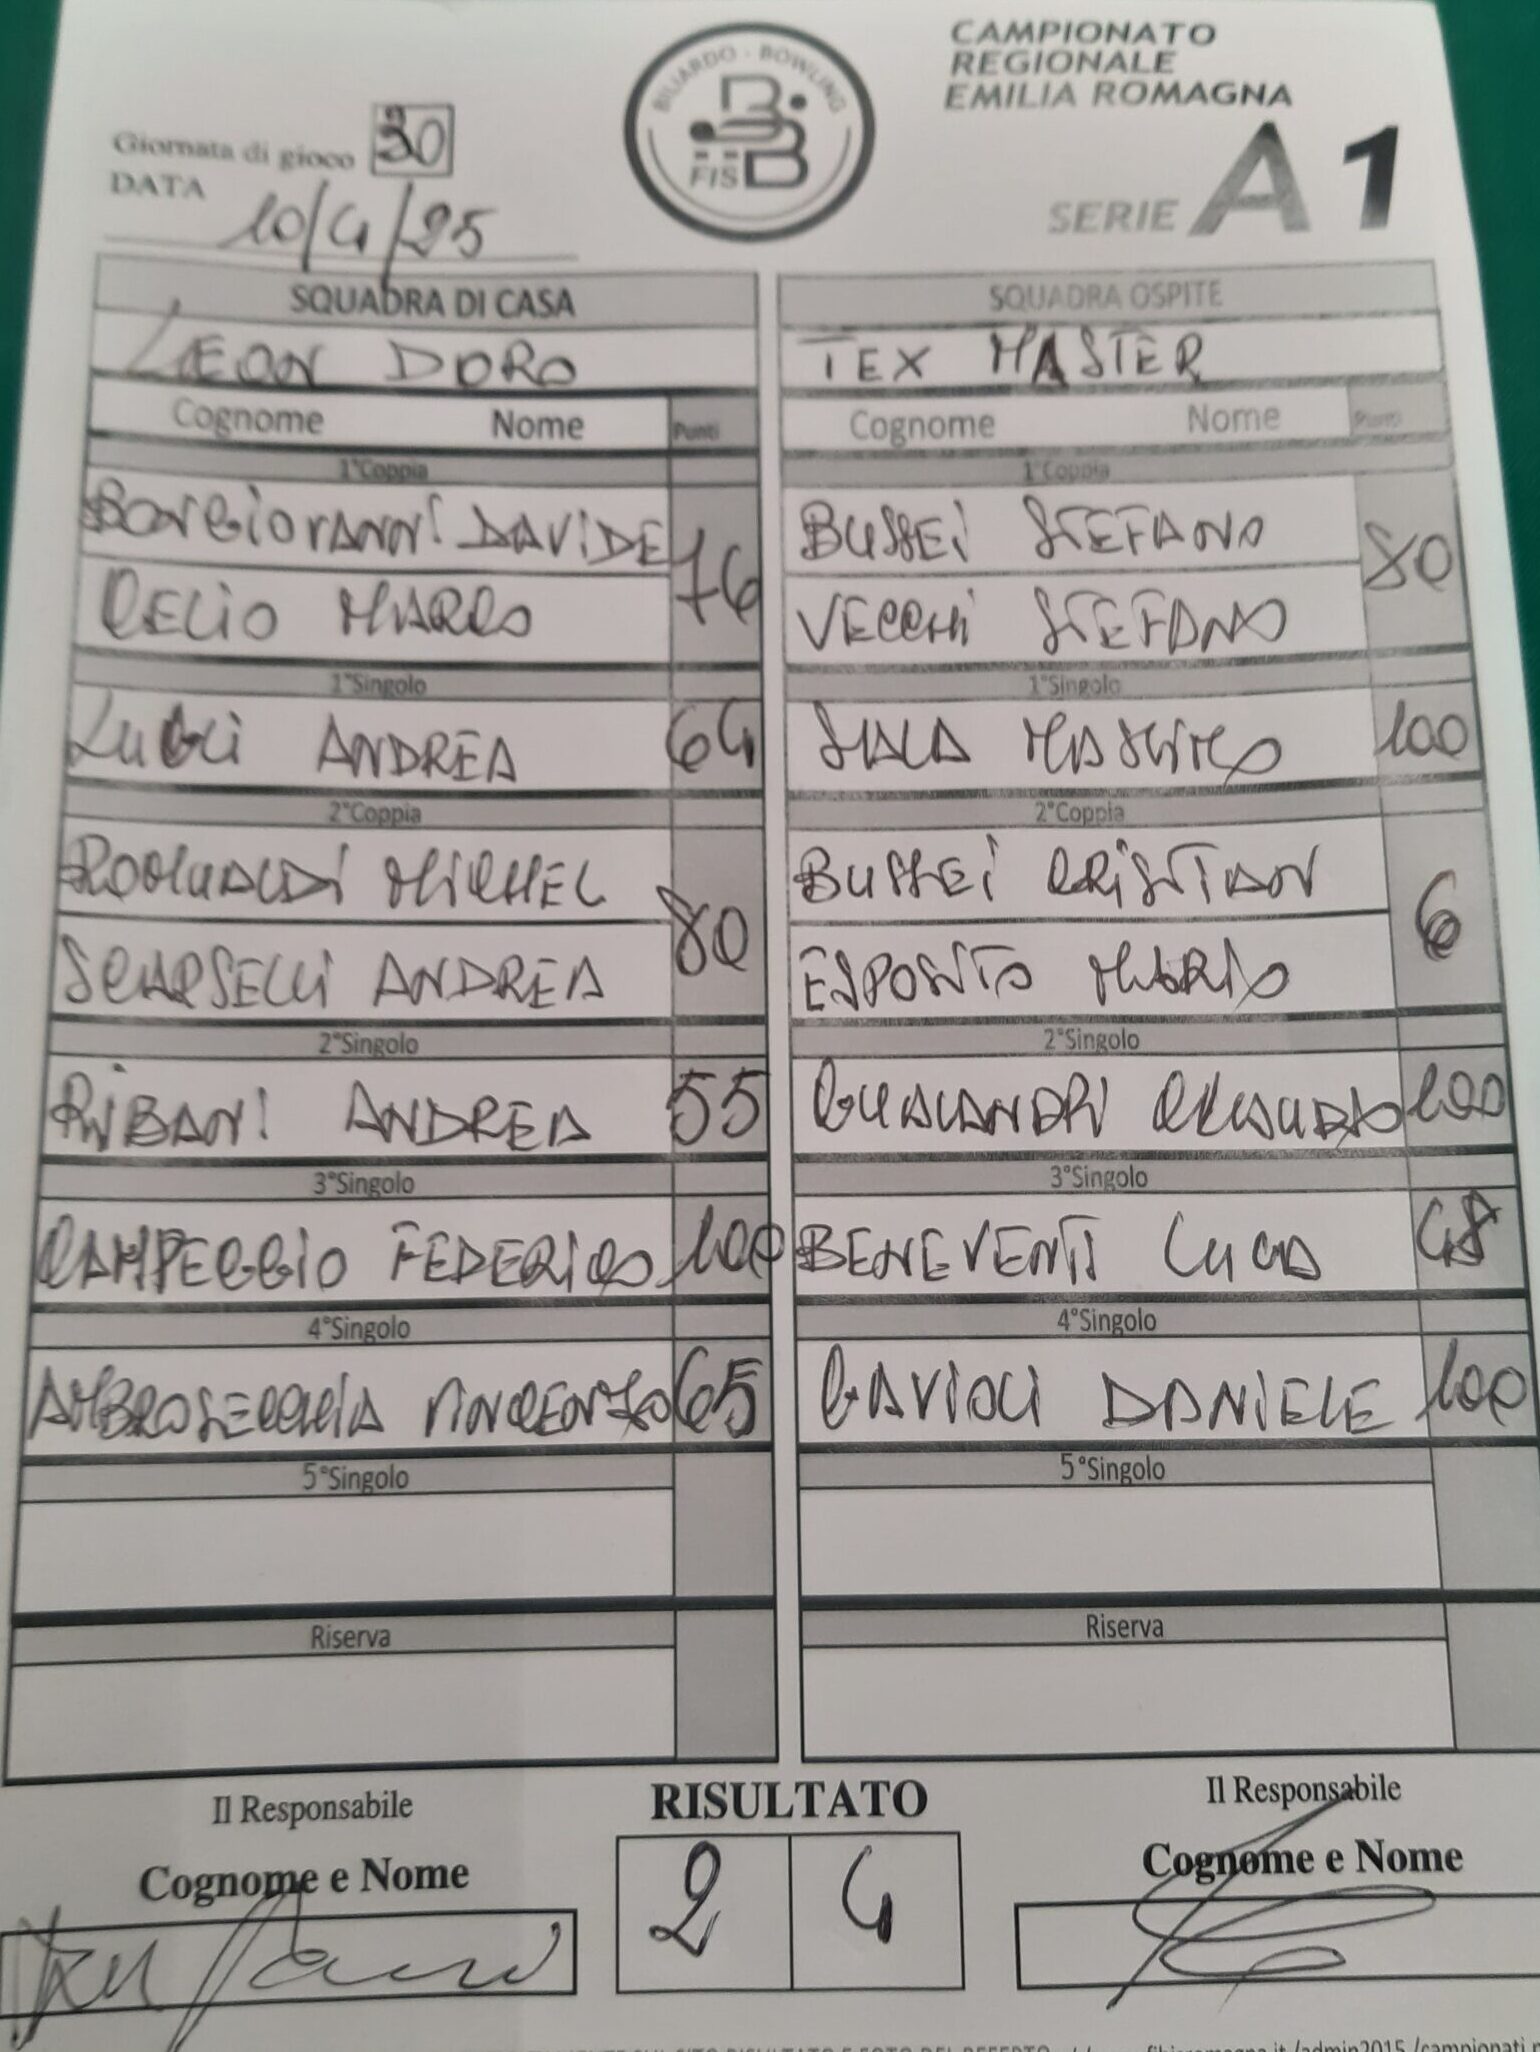 BILIARDO - BOWLING
FISBB
CAMPIONATO
REGIONALE
EMILIA ROMAGNA
SERIE A1
Giornata di gioco
DATA 10/4/25
SQUADRA DI CASA SQUADRA OSPITE
LEON DORO TEX MASTER
Cognome Nome Punti Cognome Nome Punti
1°Coppia 1°Coppia
BONGIOVANNI DAVIDE 76 BUSSEI STEFANO 80
CELIO MARCO VECCHI STEFANO
1°Singolo 1°Singolo
LUGLI ANDREA 64 SALA MASSIMO 100
2°Coppia 2°Coppia
ROMUALDI MICHEL 80 BUSSEI CRISTIAN 6
SCARSELLI ANDREA ESPOSITO MARIO
2°Singolo 2°Singolo
RIBANI ANDREA 55 GUALANDRI CLAUDIO 100
3°Singolo 3°Singolo
CAMPEGGIO FEDERICO 100 BENEVENTI LUCA 48
4°Singolo 4°Singolo
AMBROSECCHIA VINCENZO 65 GAVIOLI DANIELE 100
5°Singolo 5°Singolo
Riserva Riserva
Il Responsabile RISULTATO Il Responsabile
Cognome e Nome 2 4 Cognome e Nome